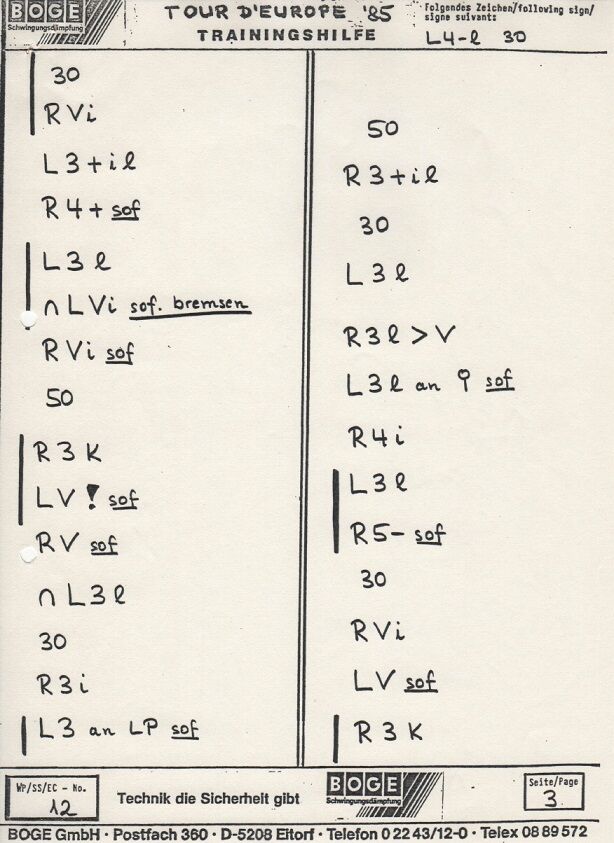 BOGE
Schwingungsdämpfung
TOUR D'EUROPE '85
TRAININGSHILFE
Folgendes Zeichen/following sign/
signe suivant:
L4-l 30
30
RVi
L3+il
R4+ sof
L3l
∩ LVi sof. bremsen
RVi sof
50
R3K
LV! sof
RV sof
∩ L3l
30
R3i
L3 an LP sof
50
R3+il
30
L3l
R3l > V
L3l an sof
R4i
L3l
R5- sof
30
RVi
LV sof
R3K
WP/SS/EC - No.
12
Technik die Sicherheit gibt
BOGE
Schwingungsdämpfung
Seite/Page
3
BOGE GmbH · Postfach 360 · D-5208 Eitorf · Telefon 0 22 43/12-0 · Telex 08 89 572